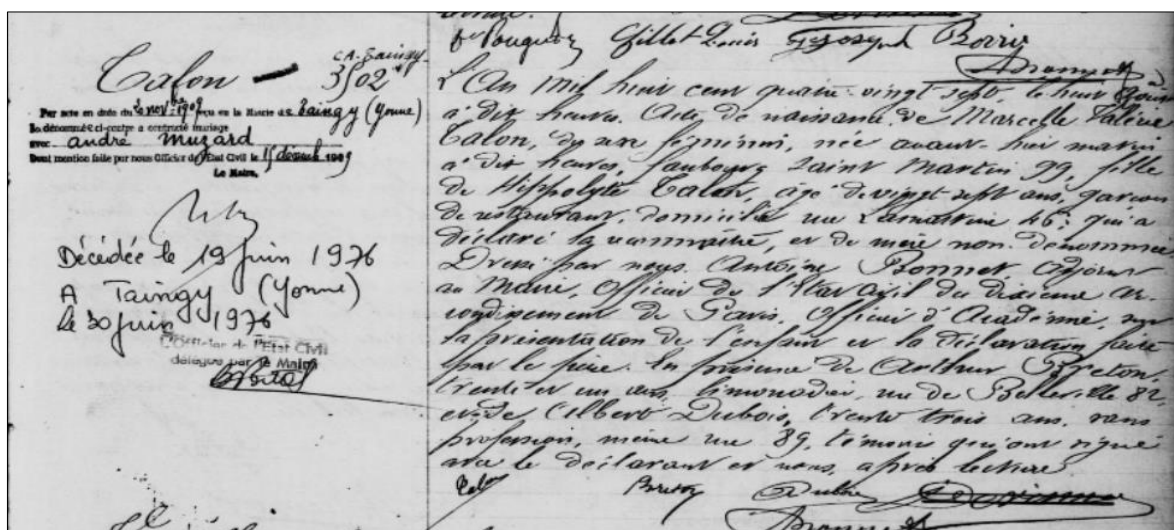 Gillet Louis Joseph Boiry
Talon
C.A. Taingy
3/02
Par acte en date du 2 novbre 1909 reçu en la Mairie de Taingy (Yonne)
la dénommée ci-contre a contracté mariage
avec andré Muzard
Dont mention faite par nous Officier de l'Etat Civil le 15 décemb 1909
Le Maire,
Décédée le 19 juin 1976
A Taingy (Yonne)
Le 30 juin 1976
L'Officier de l'Etat Civil
délégué par le Maire
L'An mil huit cent quatre-vingt sept, le huit
à dix heures. Acte de naissance de Marcelle Valérie
Talon, du sexe féminin, née avant-hier matin
à dix heures, faubourg Saint Martin 99, fille
de Hippolyte Talon, âgé de vingt sept ans, garçon
de restaurant, domicilié rue Lamartine 46; qui a
déclaré la reconnaître, et de mère non dénommée
Dressé par nous, Antoine Bonnet, adjoint
au Maire, Officier de l'Etat Civil du dixième ar-
rondissement de Paris, Officier d'Académie, sur
la présentation de l'enfant et la déclaration faite
par le père. En présence de Arthur Breton,
trente et un ans, limonadier, rue de Belleville 82
et de Albert Dubois, trente trois ans, sans
profession, même rue 89, témoins qui ont signé
avec le déclarant et nous, après lecture
Talon Breton Dubois
Bonnet